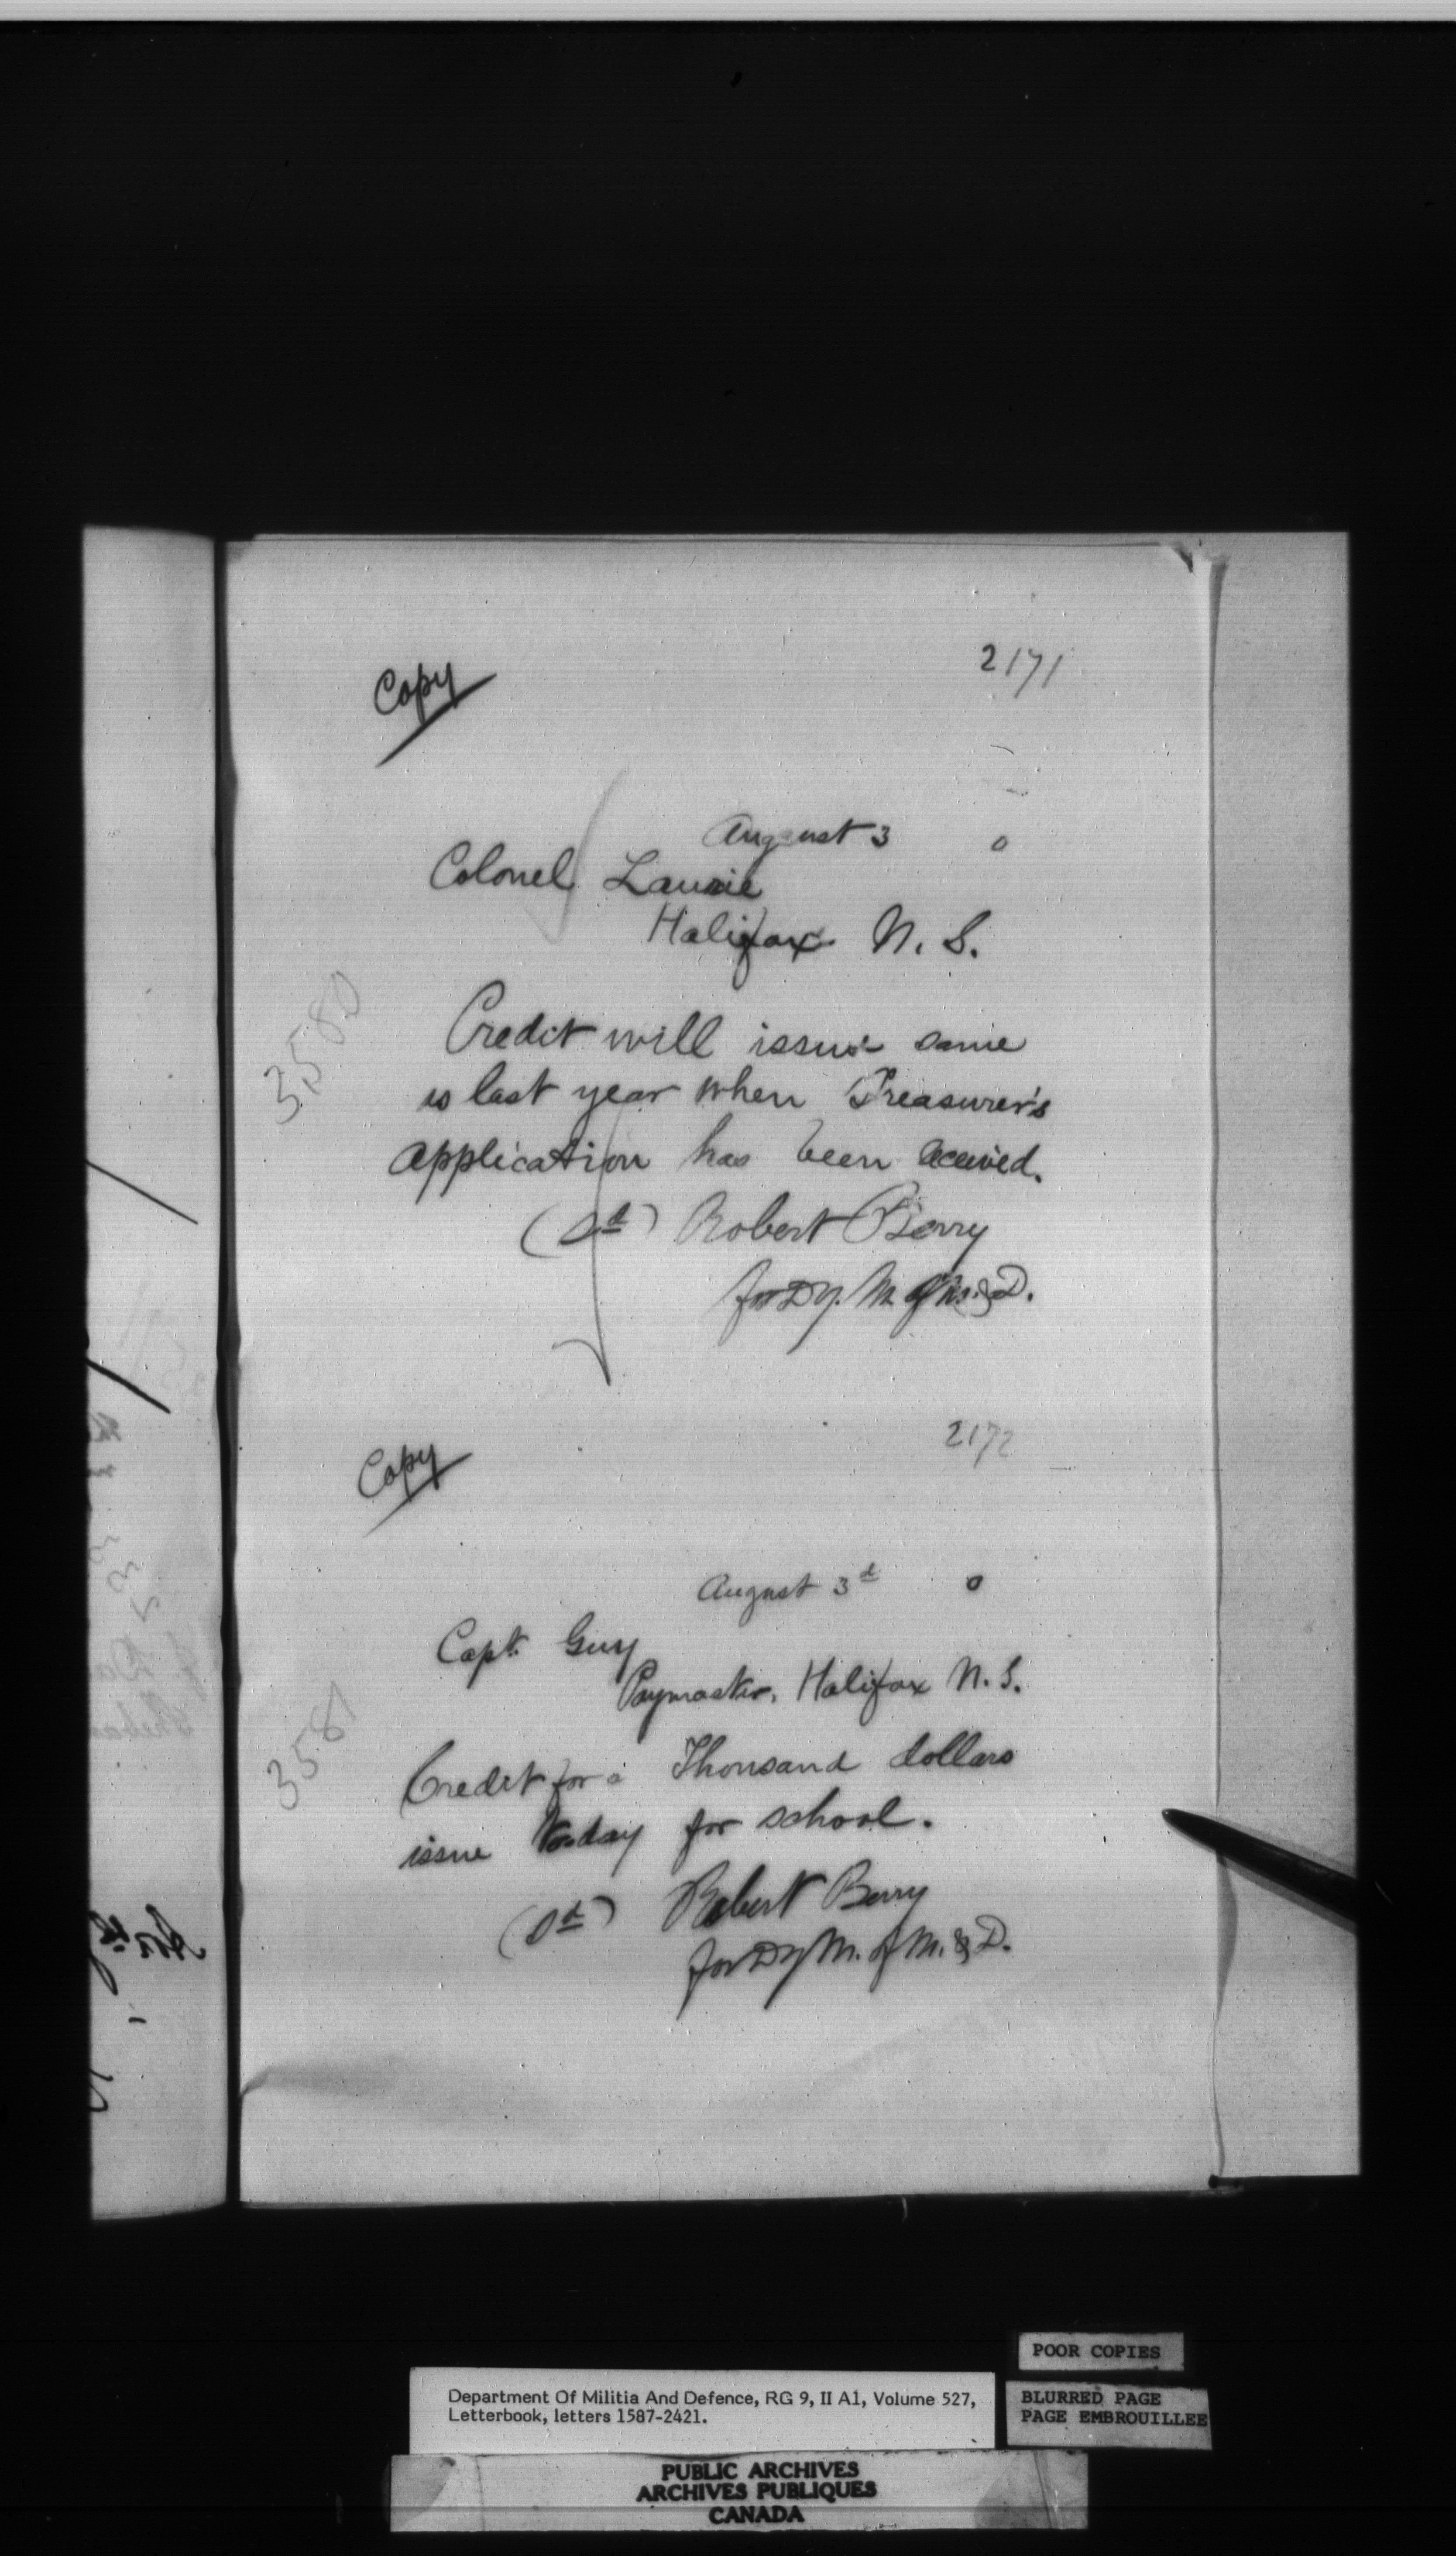 Copy
2171
August 3 0
Colonel Laurie
Halifax N. S.
3580
Credit will issue same
as last year when Treasurer's
application has been received.
(Sd) Robert Berry
for Dy. M. of M. & D.
2172
Copy
August 3d 0
Capt. Guy
Paymaster, Halifax N. S.
3581
Credit for a Thousand dollars
issue today for school.
(Sd) Robert Berry
for Dy M. of M. & D.
POOR COPIES
Department Of Militia And Defence, RG 9, II A1, Volume 527,
Letterbook, letters 1587-2421.
BLURRED PAGE
PAGE EMBROUILLEE
PUBLIC ARCHIVES
ARCHIVES PUBLIQUES
CANADA